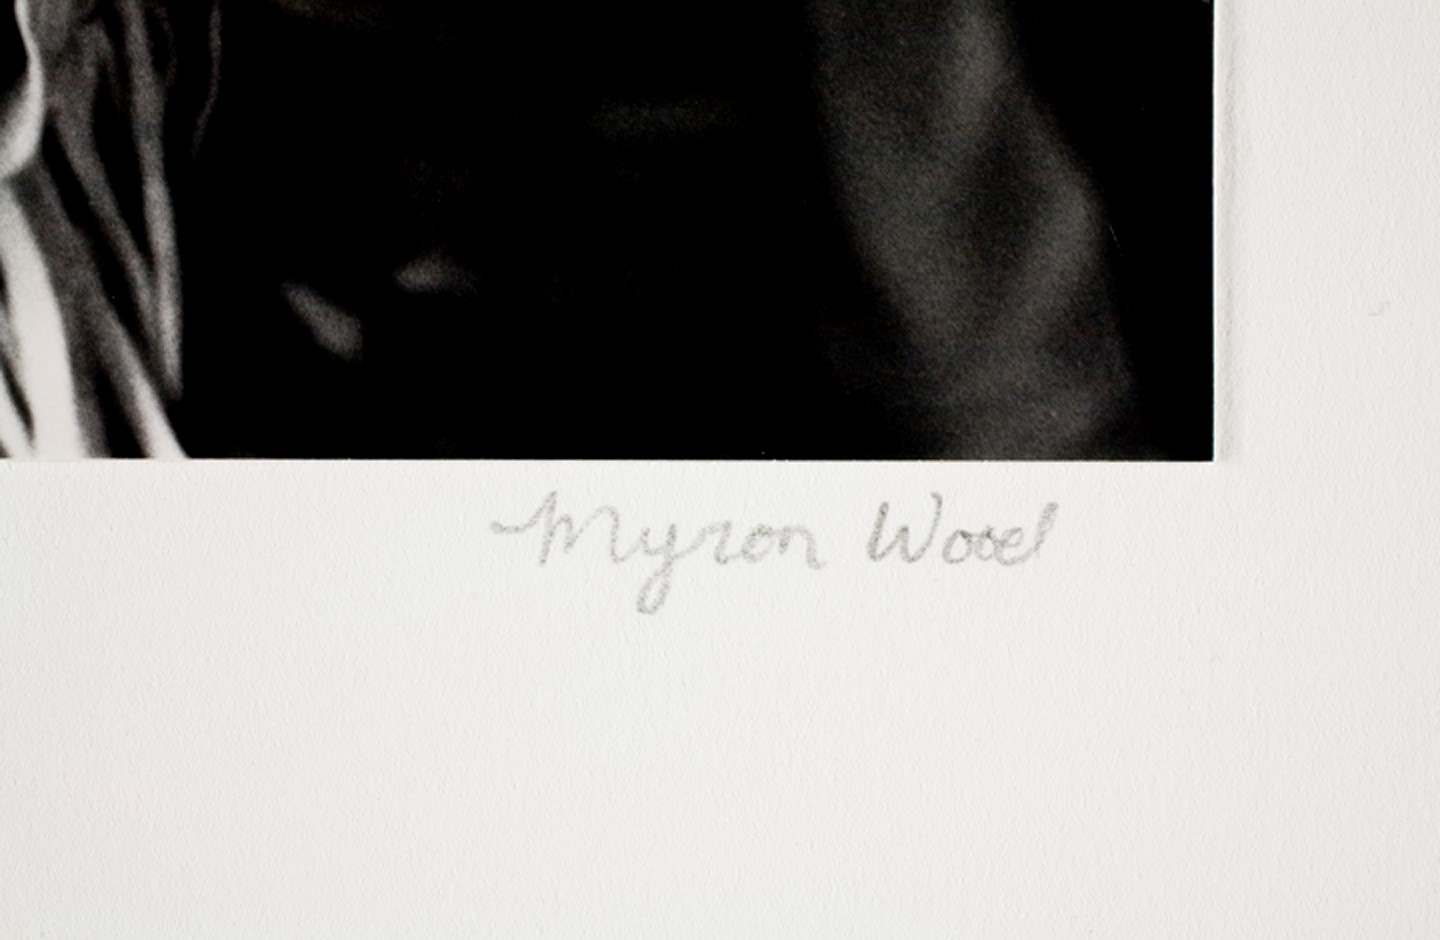 Myron Wood